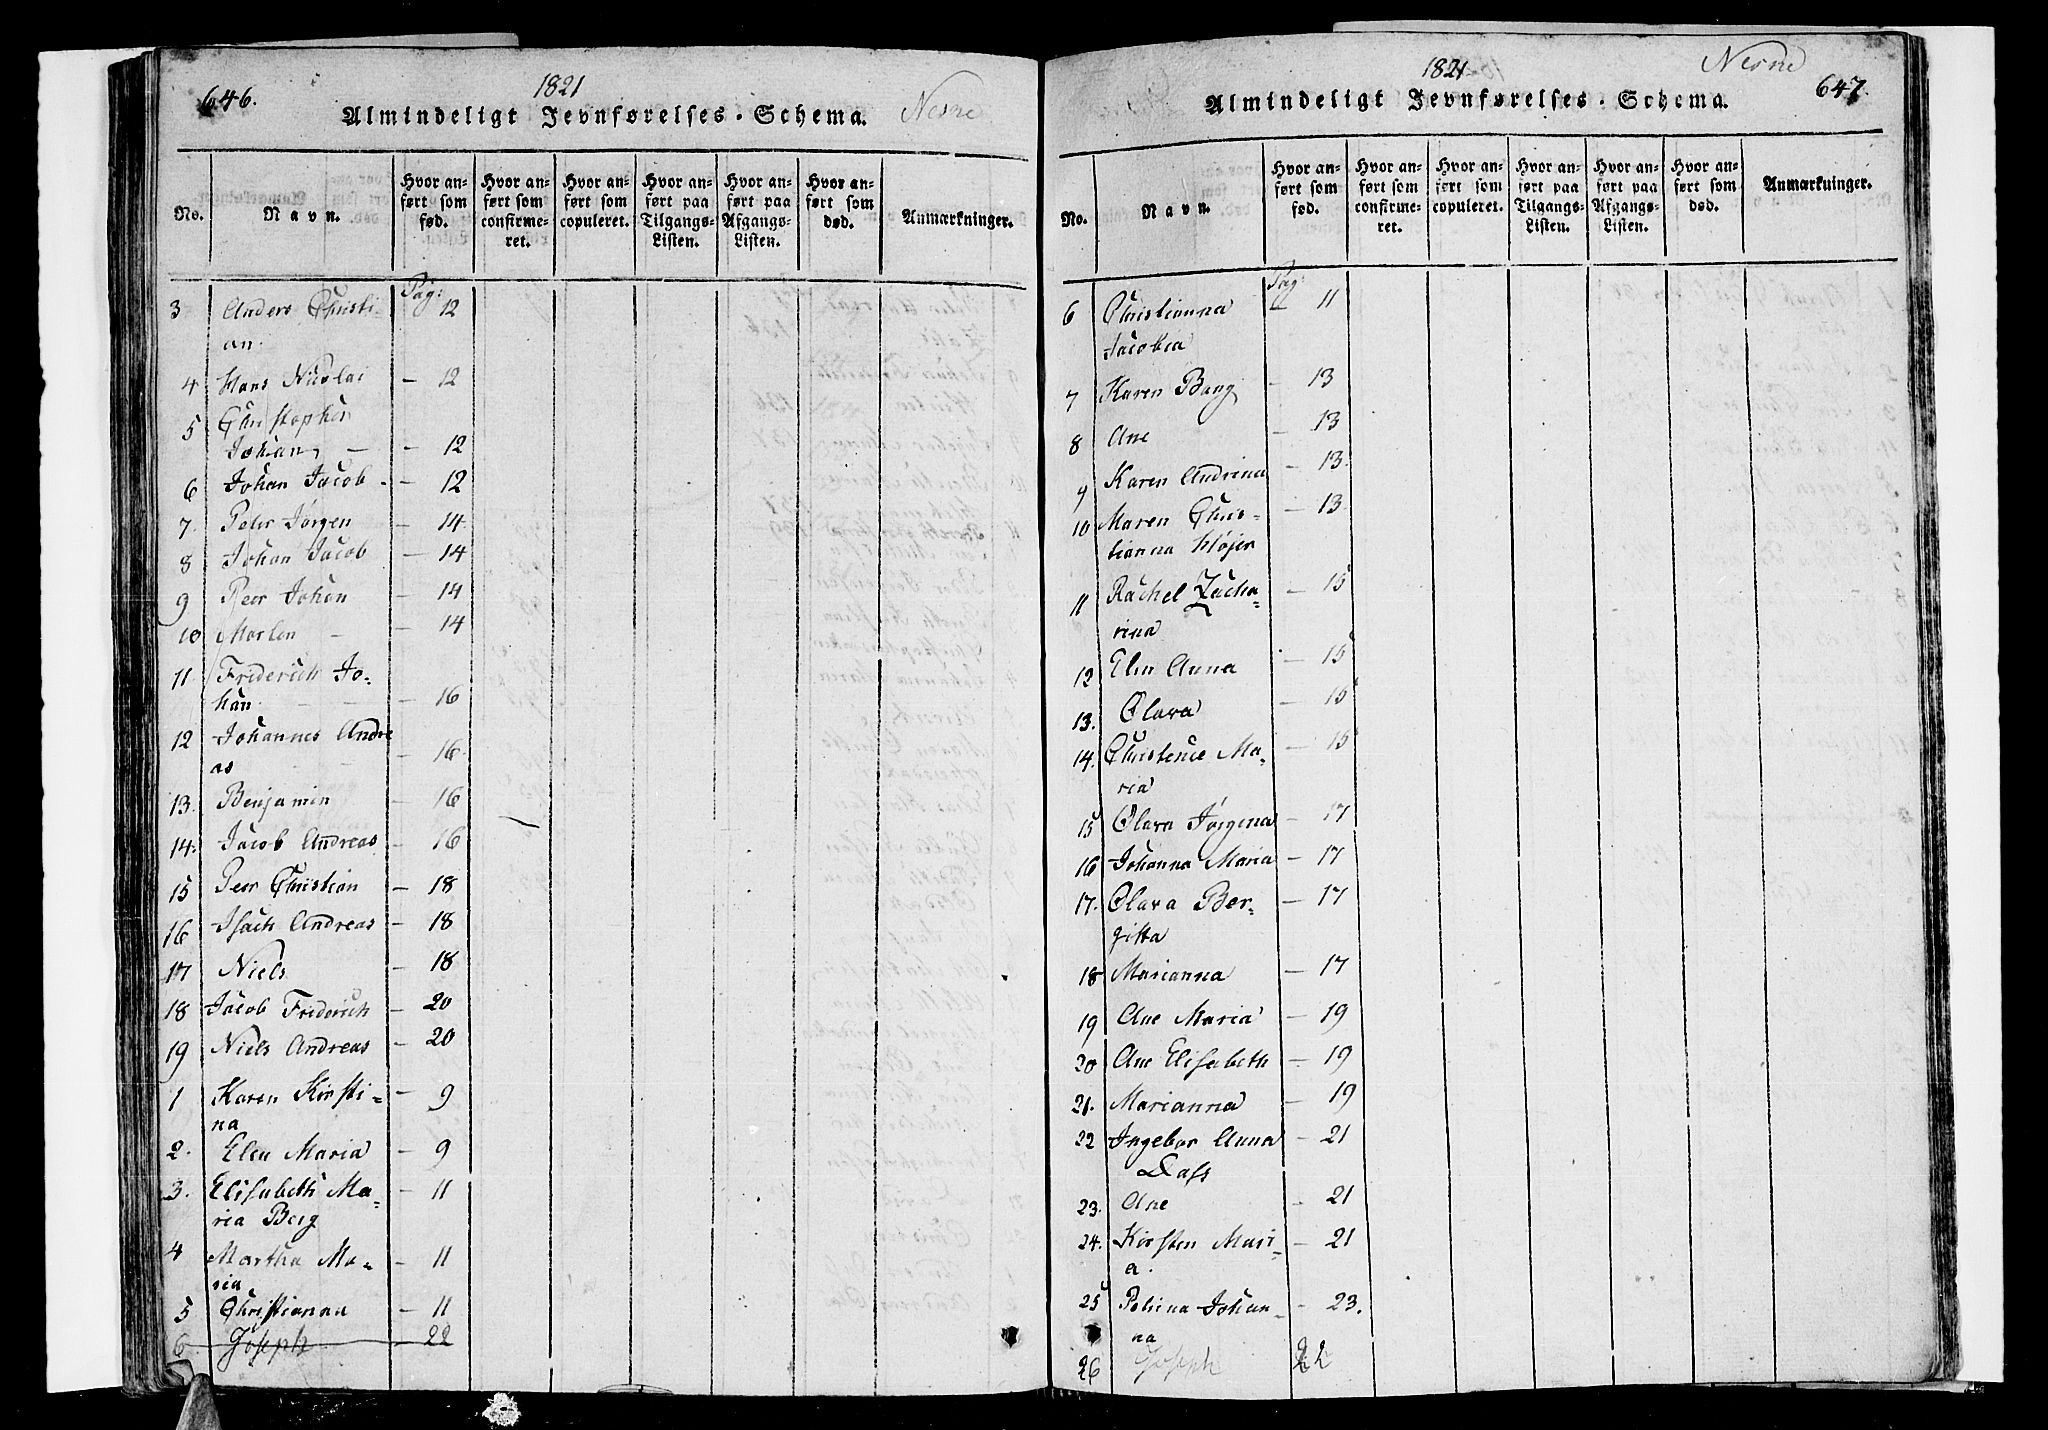 646.
1821
Almindeligt Jevnførelses-Schema.
Nesne
No.
Navn.
Hvor anført som fød.
Hvor anført som confirmeret.
Hvor anført som copuleret.
Hvor anført paa Tilgangs-Listen.
Hvor anført paa Afgangs-Listen.
Hvor anført som død.
Anmærkninger.
Pag:
3 Anders Christi- 12
an.
4 Hans Nicolai — 12
5 Christopher
Johan, — — 12
6 Johan Jacob - - 12
7. Peter Jörgen — 14
8 Johan Jacob — 14
9 Peer Johan — 14
10 Morten — — 14
11 Friderich Jo-
han. — — 16
12 Johannes Andre
as — — 16
13. Benjamin — 16
14. Jacob Andreas — 16
15 Peer Christian — 18
16 Isach Andreas — 18
17 Niels — 18
18 Jacob Friderich — 20
19 Niels Andreas — 20
1 Karen Kirsti- — 9
na
2. Elen Maria — 9
3. Elisabeth Ma- — 11
ria Berg
4 Martha Ma- — 11
ria
5 Christianna — 11
6 Joseph — 22
1821
Nesne
647.
Almindeligt Jevnførelses-Schema.
No.
Navn.
Hvor anført som fød.
Hvor anført som confirmeret.
Hvor anført som copuleret.
Hvor anført paa Tilgangs-Listen.
Hvor anført paa Afgangs-Listen.
Hvor anført som død.
Anmærkninger.
Pag:
6 Christianna — 11
Jacobia
7 Karen Bang — 13
8 Ane — 13
9 Karen Andrina — 13.
10 Maren Chris- — 13.
tianna Højer
11 Rachel Zacha- — 15
rina
12 Elen Anna — 15
13. Olava — 15
14. Christence Ma- — 15
ria
15 Olava Jörgina — 17
16 Johanna Maria — 17
17. Olava Ber- — 17
gitta
18 Marianna — 17
19 Ane Maria — 19
20 Ane Elisabeth — 19
21. Marianna — 19
22 Ingebor Anna — 21
Dass
23. Ane — 21
24. Kirsten Mari- — 21
a.
25 Petrina Johan- — 23.
na
26 Joseph 22